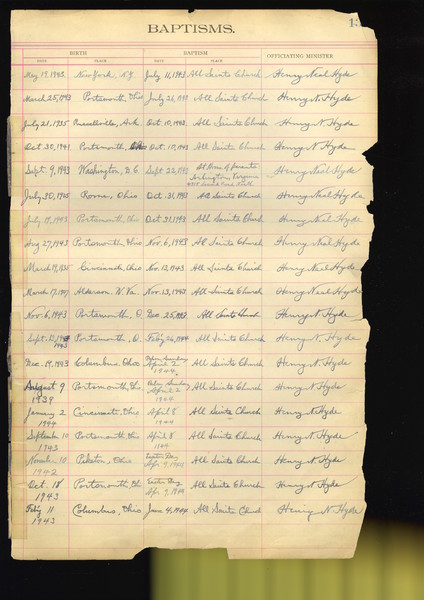 BAPTISMS.
BIRTH BAPTISM OFFICIATING MINISTER
DATE PLACE DATE PLACE
May 19, 1943 New York, N.Y. July 11, 1943 All Saints Church Henry Neal Hyde
March 25, 1943 Portsmouth, Ohio July 25, 1943 All Saints Church Henry N. Hyde
July 21, 1935 Russellville, Ark Oct. 10, 1943 All Saints Church Henry N. Hyde
Oct 30, 1941 Portsmouth, Ohio Oct. 10, 1943 All Saints Church Henry N. Hyde
Sept. 9, 1943 Washington, D.C. Sept. 22, 1943 At Home of parents
Arlington Virginia
Henry Neal Hyde
July 30, 1905 Rome, Ohio Oct. 31, 1943 All Saints Church Henry Neal Hyde
July 19, 1943 Portsmouth, Ohio Oct. 31, 1943 All Saints Church Henry Neal Hyde
Aug 27, 1943 Portsmouth, Ohio Nov. 6, 1943 All Saints Church Henry Neal Hyde
March 19, 1935 Cincinnati, Ohio Nov. 13, 1943 All Saints Church Henry Neal Hyde
March 17, 1907 Alderson, W. Va. Nov. 13, 1943 All Saints Church Henry Neal Hyde
Nov. 6, 1943 Portsmouth, O. Dec 25, 1943 All Saints Church Henry N. Hyde
Sept. 1943 Portsmouth, O. Feb 26, 1944 All Saints Church Henry N. Hyde
Dec. 19, 1943 Columbus, Ohio Palm Sunday
April 2
1944
All Saints Church Henry N. Hyde
August 9
1939
Portsmouth, Ohio Palm Sunday
April 2
1944
All Saints Church Henry N. Hyde
January 2
1944
Cincinnati, Ohio April 8
1944
All Saints Church Henry N. Hyde
September 10
1943
Portsmouth, Ohio April 8
1944
All Saints Church Henry N. Hyde
November 10
1942
Piketon, Ohio Easter Day
Apr. 9, 1944
All Saints Church Henry N. Hyde
Oct. 18
1943
Portsmouth, Ohio Easter Day
Apr. 9, 1944
All Saints Church Henry N. Hyde
Feb'y 11
1943
Columbus, Ohio June 4, 1944 All Saints Church Henry N. Hyde